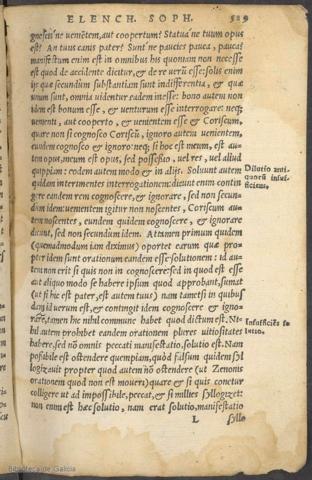 ELENCH. SOPH. 529
gnoscis ne venientem, aut coopertum? Statua ne tuum opus
est? An tuus canis pater? Sunt ne paucies pauca, pauca?
manifestum enim est in omnibus his quoniam non necesse
est quod de accidente dicitur, & de re verū esse: solis enim
ijs quæ secundum substantiam sunt indifferentia, & quæ
unum sunt, omnia videntur eadem inesse: bono autem non
idem est bonum esse, & venturum esse interrogare: neq;
venienti, aut cooperto, & venientem esse & Coriscum,
quare non si cognosco Coriscū, ignoro autem venientem,
eundem cognosco & ignoro: neq; si hoc est meum, est au-
tem opus, meum est opus, sed possessio, vel res, vel aliud
quippiam: eodem autem modo & in alijs. Soluunt autem
quidam interimentes interrogationem: dicunt enim contin
gere eandem rem cognoscere, & ignorare, sed non secun-
dum idem: venientem igitur non noscentes, Coriscum au-
tem noscentes, eundem quidem cognoscere, & ignorare
dicunt, sed non secundum idem. Attamen primum quidem
(quemadmodum iam diximus) oportet earum quæ pro-
pter idem sunt orationum eandem esse solutionem: id au-
tem non erit si quis non in cognoscere: sed in quod est esse
aut aliquo modo se habere ipsum quod approbant, sumat
(ut si hic est pater, est autem tuus) nam tametsi in quibus
dam id verum est, & contingit idem cognoscere & igno-
rare, tamen hic nihil commune habet quod dictum est. Ni-
hil autem prohibet eandem orationem plures vitiositates
habere, sed nō omnis peccati manifestatio, solutio est. Nam
possibile est ostendere quempiam, quòd falsum quidem syl
logizauit propter quod autem nō ostendere (ut Zenonis
orationem quod non est moueri) quare & si quis conetur
colligere ut ad impossibile, peccat, & si milies syllogizet:
non enim est hæc solutio, nam erat solutio, manifestatio
L syllo
Dilutio anti-
quorū insuf-
ficiens.
Insufficiēs so
lutio.
Biblioteca de Galicia